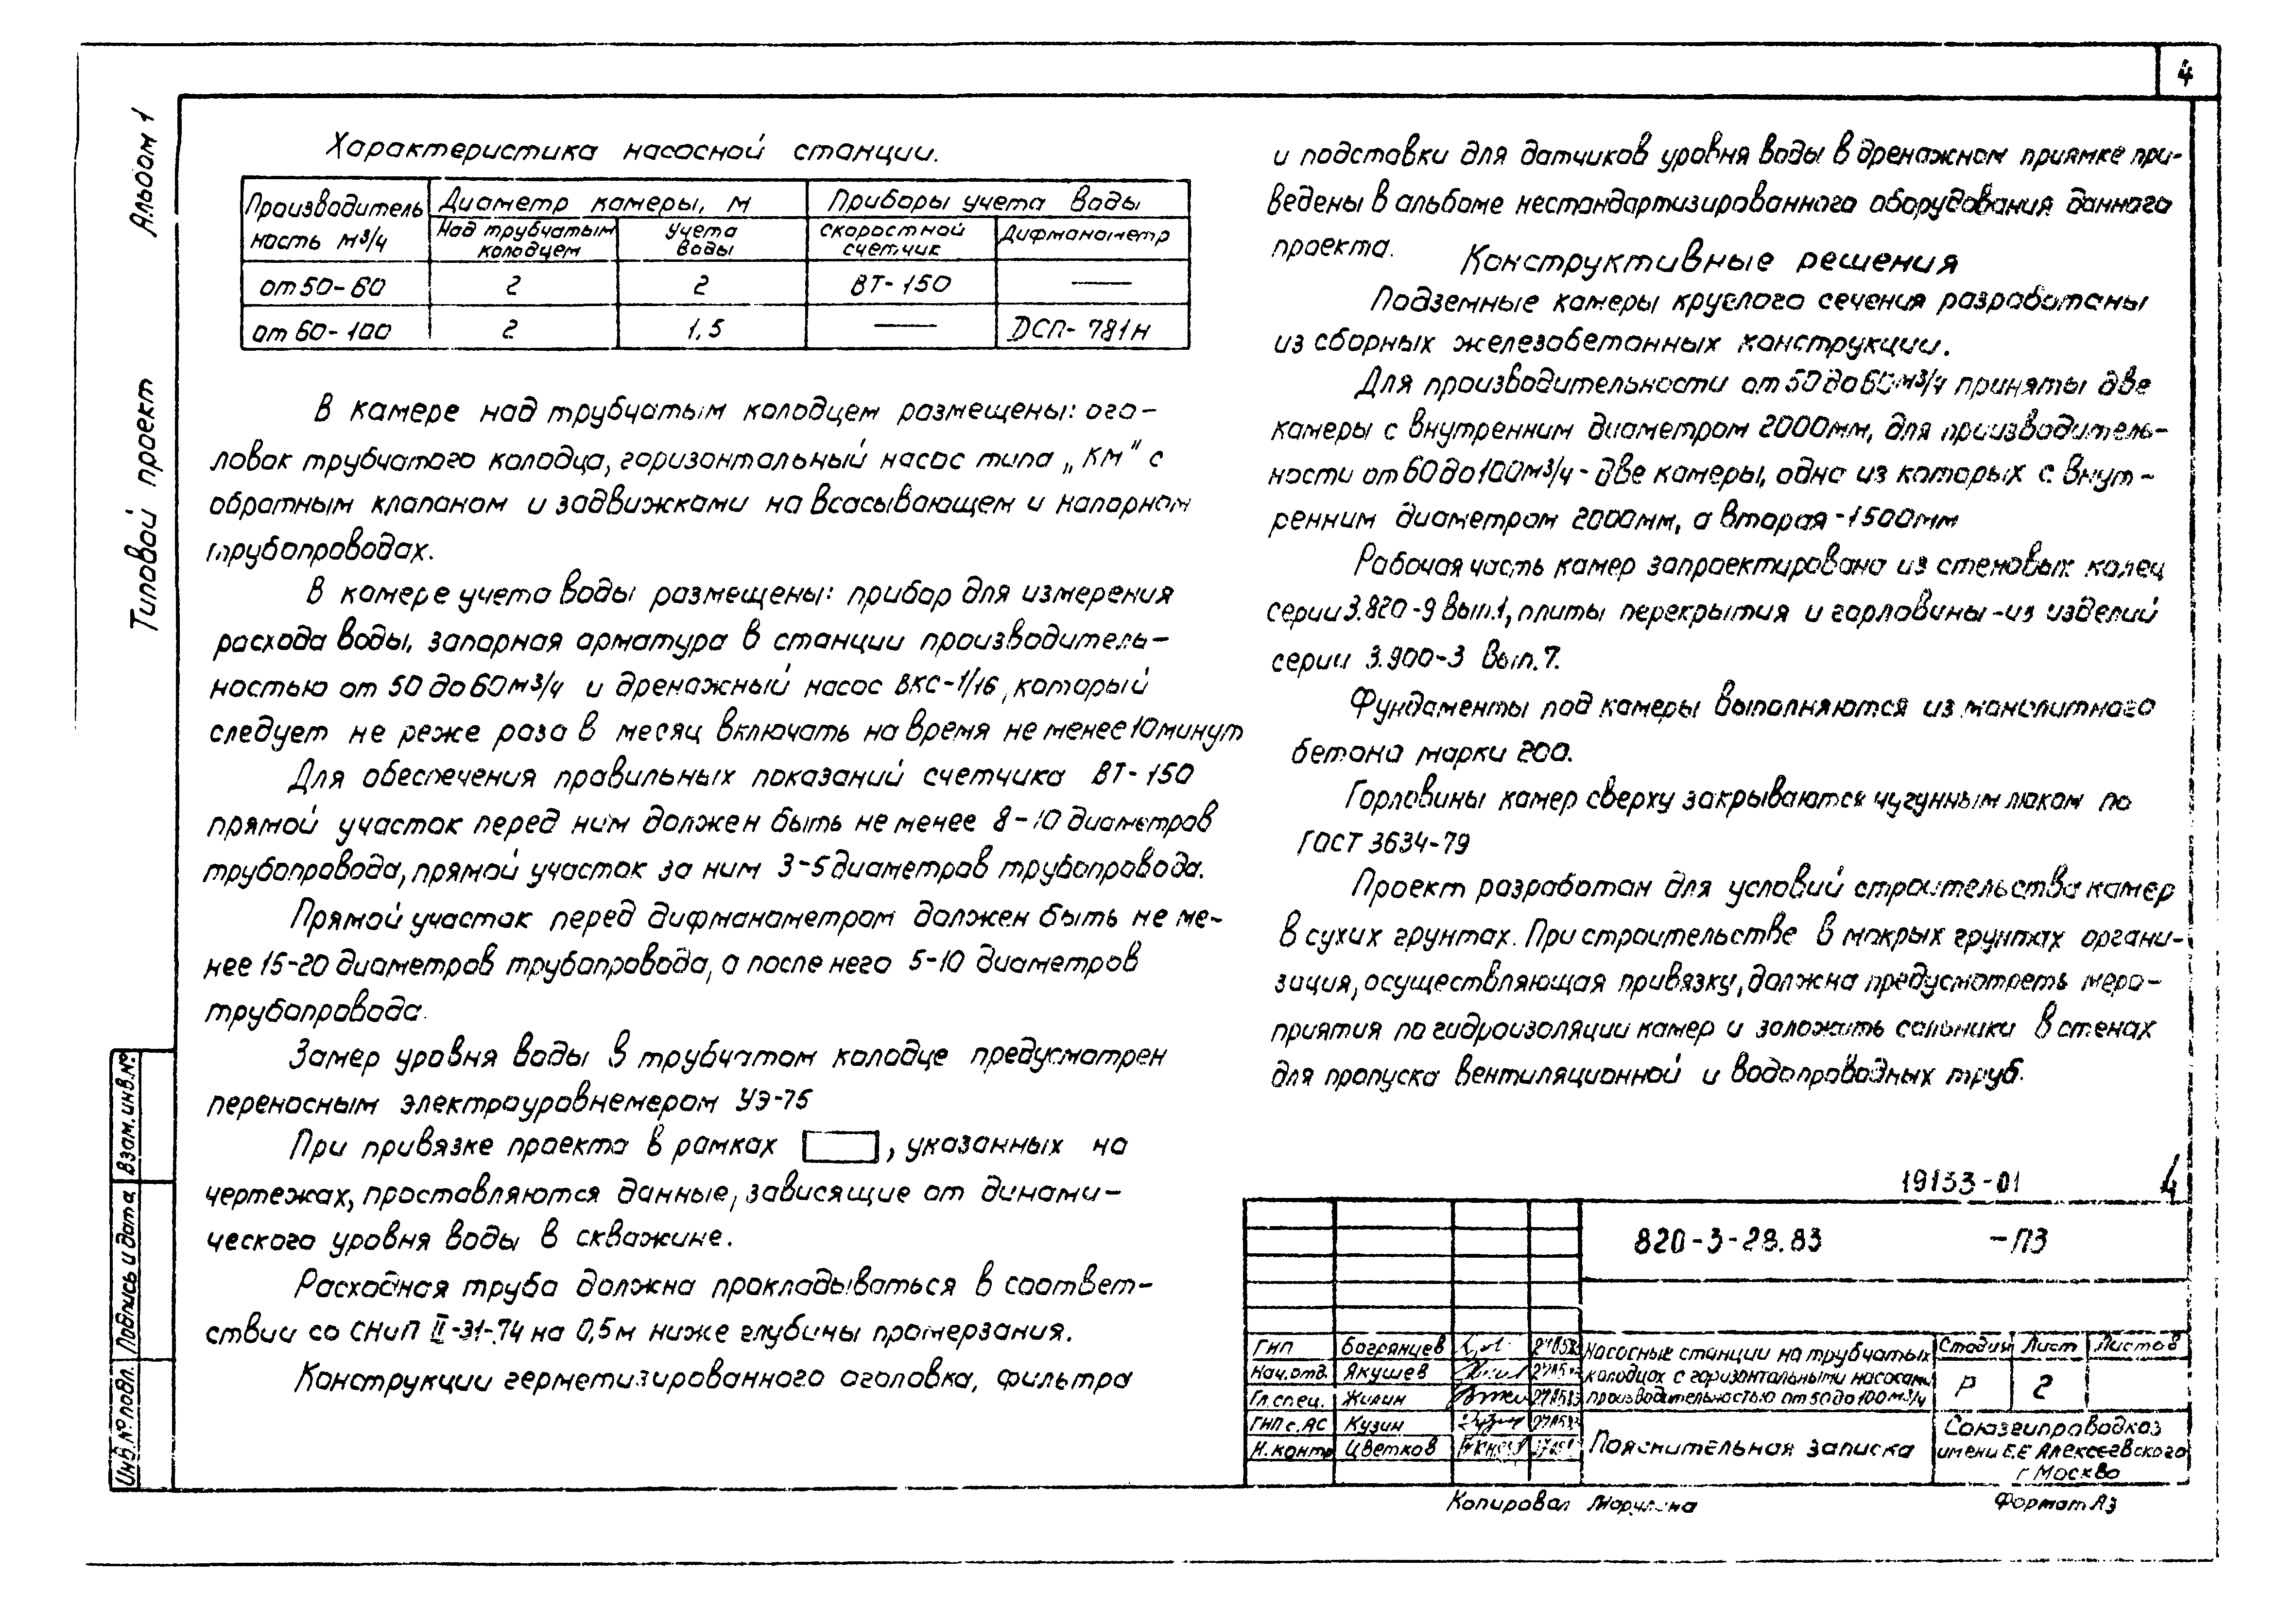 4
Альбом 1
Типовой проект
Характеристика насосной станции.
Производитель Диаметр камеры, м Приборы учета воды
ность м³/ч Над трубчатым колодцем Учета воды скоростной счетчик Дифманометр
от 50-60 2 2 ВТ-150 —
от 60-100 2 1,5 — ДСП-781Н
В камере над трубчатым колодцем размещены: ого-
ловок трубчатого колодца, горизонтальный насос типа „КМ" с
обратным клапаном и задвижками на всасывающем и напорном
трубопроводах.
В камере учета воды размещены: прибор для измерения
расхода воды, запорная арматура в станции производитель-
ностью от 50 до 60 м³/ч и дренажный насос ВКС-1/16, который
следует не реже раза в месяц включать на время не менее 10 минут
Для обеспечения правильных показаний счетчика ВТ-150
прямой участок перед ним должен быть не менее 8-10 диаметров
трубопровода, прямой участок за ним 3-5 диаметров трубопровода.
Прямой участок перед дифманометром должен быть не ме-
нее 15-20 диаметров трубопровода, а после него 5-10 диаметров
трубопровода.
Замер уровня воды в трубчатом колодце предусмотрен
переносным электроуровнемером УЭ-75
При привязке проекта в рамках , указанных на
чертежах, проставляются данные, зависящие от динами-
ческого уровня воды в скважине.
Расходная труба должна прокладываться в соответ-
ствии со СНиП II-31-74 на 0,5м ниже глубины промерзания.
Конструкции герметизированного оголовка, фильтра
и подставки для датчиков уровня воды в дренажном приямке при-
ведены в альбоме нестандартизированного оборудования данного
проекта.
Конструктивные решения
Подземные камеры круглого сечения разработаны
из сборных железобетонных конструкции.
Для производительности от 50 до 60 м³/ч приняты две
камеры с внутренним диаметром 2000мм, для производитель-
ности от 60 до 100 м³/ч - две камеры, одна из которых с внут-
ренним диаметром 2000мм, а вторая - 1500мм
Рабочая часть камер запроектирована из стеновых колец
серии 3.820-9 вып.1, плиты перекрытия и горловины - из изделий
серии 3.900-3 вып.7.
Фундаменты под камеры выполняются из монолитного
бетона марки 200.
Горловины камер сверху закрываются чугунным люком по
ГОСТ 3634-79
Проект разработан для условий строительства камер
в сухих грунтах. При строительстве в мокрых грунтах органи-
зация, осуществляющая привязку, должна предусмотреть меро-
приятия по гидроизоляции камер и заложить сальники в стенах
для пропуска вентиляционной и водопроводных труб.
19133-01 4
820-3-28.83 -ПЗ
ГИП Багрянцев
Нач.отд. Якушев
Гл.спец. Жилин
ГИП с.АС Кузин
Н.контр Цветков
Насосные станции на трубчатых
колодцах с горизонтальными насосами
производительностью от 50 до 100 м³/ч
Стадия Лист Листов
Р 2
Пояснительная записка
Союзгипроводхоз
имени Е.Е Алексеевского
г Москва
Копировал
Формат А3
Взам.инв.№
Подпись и дата
Инв.№ подл.